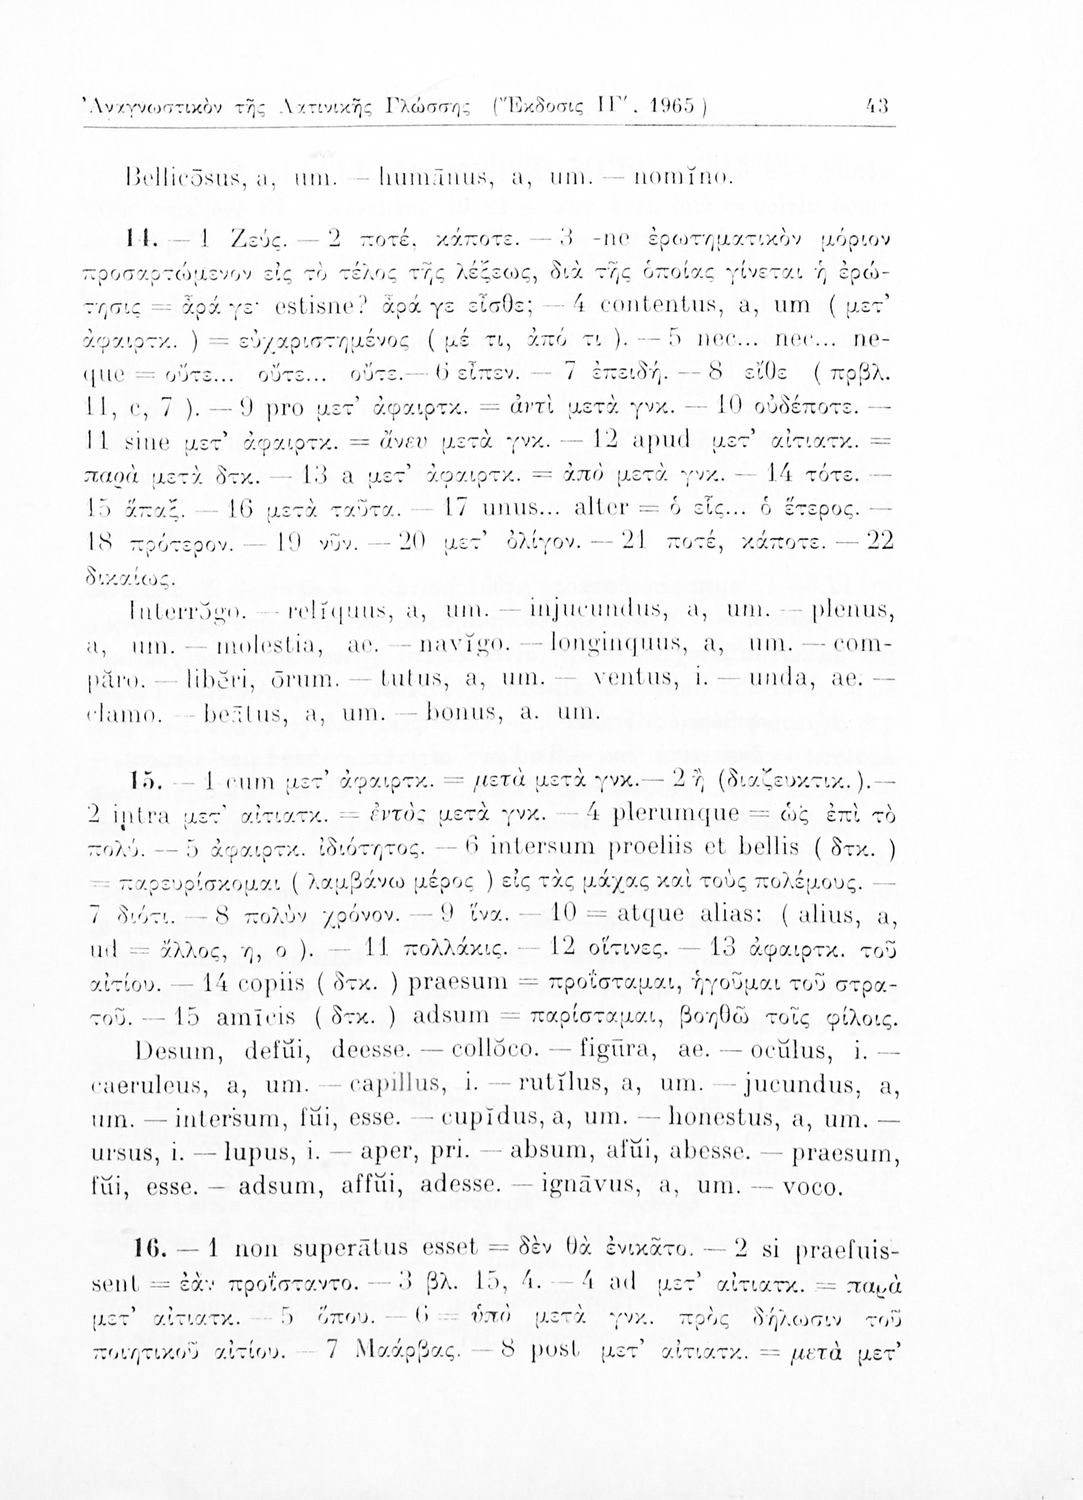 Ἀναγνωστικὸν τῆς Λατινικῆς Γλώσσης (Ἔκδοσις ΙΓ΄. 1965) 43
Bellicōsus, a, um. — humānus, a, um. — nomĭno.
14. — 1 Ζεύς. — 2 ποτέ, κάποτε. — 3 -ne ἐρωτηματικὸν μόριον
προσαρτώμενον εἰς τὸ τέλος τῆς λέξεως, διὰ τῆς ὁποίας γίνεται ἡ ἐρώ-
τησις = ἆρά γε· estisne? ἆρά γε εἶσθε; — 4 contentus, a, um ( μετ’
ἀφαιρτκ. ) = εὐχαριστημένος ( μέ τι, ἀπό τι ). — 5 nec... nec... ne-
que = οὔτε... οὔτε... οὔτε. — 6 εἶπεν. — 7 ἐπειδή. — 8 εἴθε ( πρβλ.
11, c, 7 ). — 9 pro μετ’ ἀφαιρτκ. = ἀντὶ μετὰ γνκ. — 10 οὐδέποτε. —
11 sine μετ’ ἀφαιρτκ. = ἄνευ μετὰ γνκ. — 12 apud μετ’ αἰτιατκ. =
παρὰ μετὰ δτκ. — 13 a μετ’ ἀφαιρτκ. = ἀπὸ μετὰ γνκ. — 14 τότε. —
15 ἅπαξ. — 16 μετὰ ταῦτα. — 17 unus... alter = ὁ εἷς... ὁ ἕτερος. —
18 πρότερον. — 19 νῦν. — 20 μετ’ ὀλίγον. — 21 ποτέ, κάποτε. — 22
δικαίως.
Interrŏgo. — relĭquus, a, um. — injucundus, a, um. — plenus,
a, um. — molestia, ae. — navĭgo. — longinquus, a, um. — com-
păro. — libĕri, ōrum. — tutus, a, um. — ventus, i. — unda, ae. —
clamo. — beātus, a, um. — bonus, a. um.
15. — 1 cum μετ’ ἀφαιρτκ. = μετὰ μετὰ γνκ. — 2 ἢ (διαζευκτικ.). —
2 intra μετ’ αἰτιατκ. = ἐντὸς μετὰ γνκ. — 4 plerumque = ὡς ἐπὶ τὸ
πολύ. — 5 ἀφαιρτκ. ἰδιότητος. — 6 intersum proeliis et bellis ( δτκ. )
= παρευρίσκομαι ( λαμβάνω μέρος ) εἰς τὰς μάχας καὶ τοὺς πολέμους. —
7 διότι. — 8 πολὺν χρόνον. — 9 ἵνα. — 10 = atque alias: ( alius, a,
ud = ἄλλος, η, ο ). — 11 πολλάκις. — 12 οἵτινες. — 13 ἀφαιρτκ. τοῦ
αἰτίου. — 14 copiis ( δτκ. ) praesum = προΐσταμαι, ἡγοῦμαι τοῦ στρα-
τοῦ. — 15 amīcis ( δτκ. ) adsum = παρίσταμαι, βοηθῶ τοῖς φίλοις.
Desum, defŭi, deesse. — collŏco. — figūra, ae. — ocŭlus, i. —
caeruleus, a, um. — capillus, i. — rutĭlus, a, um. — jucundus, a,
um. — intersum, fŭi, esse. — cupĭdus, a, um. — honestus, a, um. —
ursus, i. — lupus, i. — aper, pri. — absum, afŭi, abesse. — praesum,
fŭi, esse. — adsum, affŭi, adesse. — ignāvus, a, um. — voco.
16. — 1 non superātus esset = δὲν θὰ ἐνικᾶτο. — 2 si praefuis-
sent = ἐὰν προΐσταντο. — 3 βλ. 15, 4. — 4 ad μετ’ αἰτιατκ. = παρὰ
μετ’ αἰτιατκ. — 5 ὅπου. — 6 = ὑπὸ μετὰ γνκ. πρὸς δήλωσιν τοῦ
ποιητικοῦ αἰτίου. — 7 Μαάρβας. — 8 post μετ’ αἰτιατκ. = μετὰ μετ’